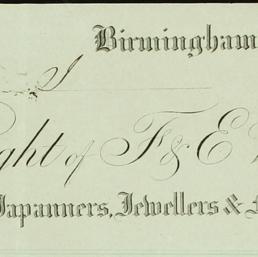 Birmingham
ght of F & E
Japanners, Jewellers &